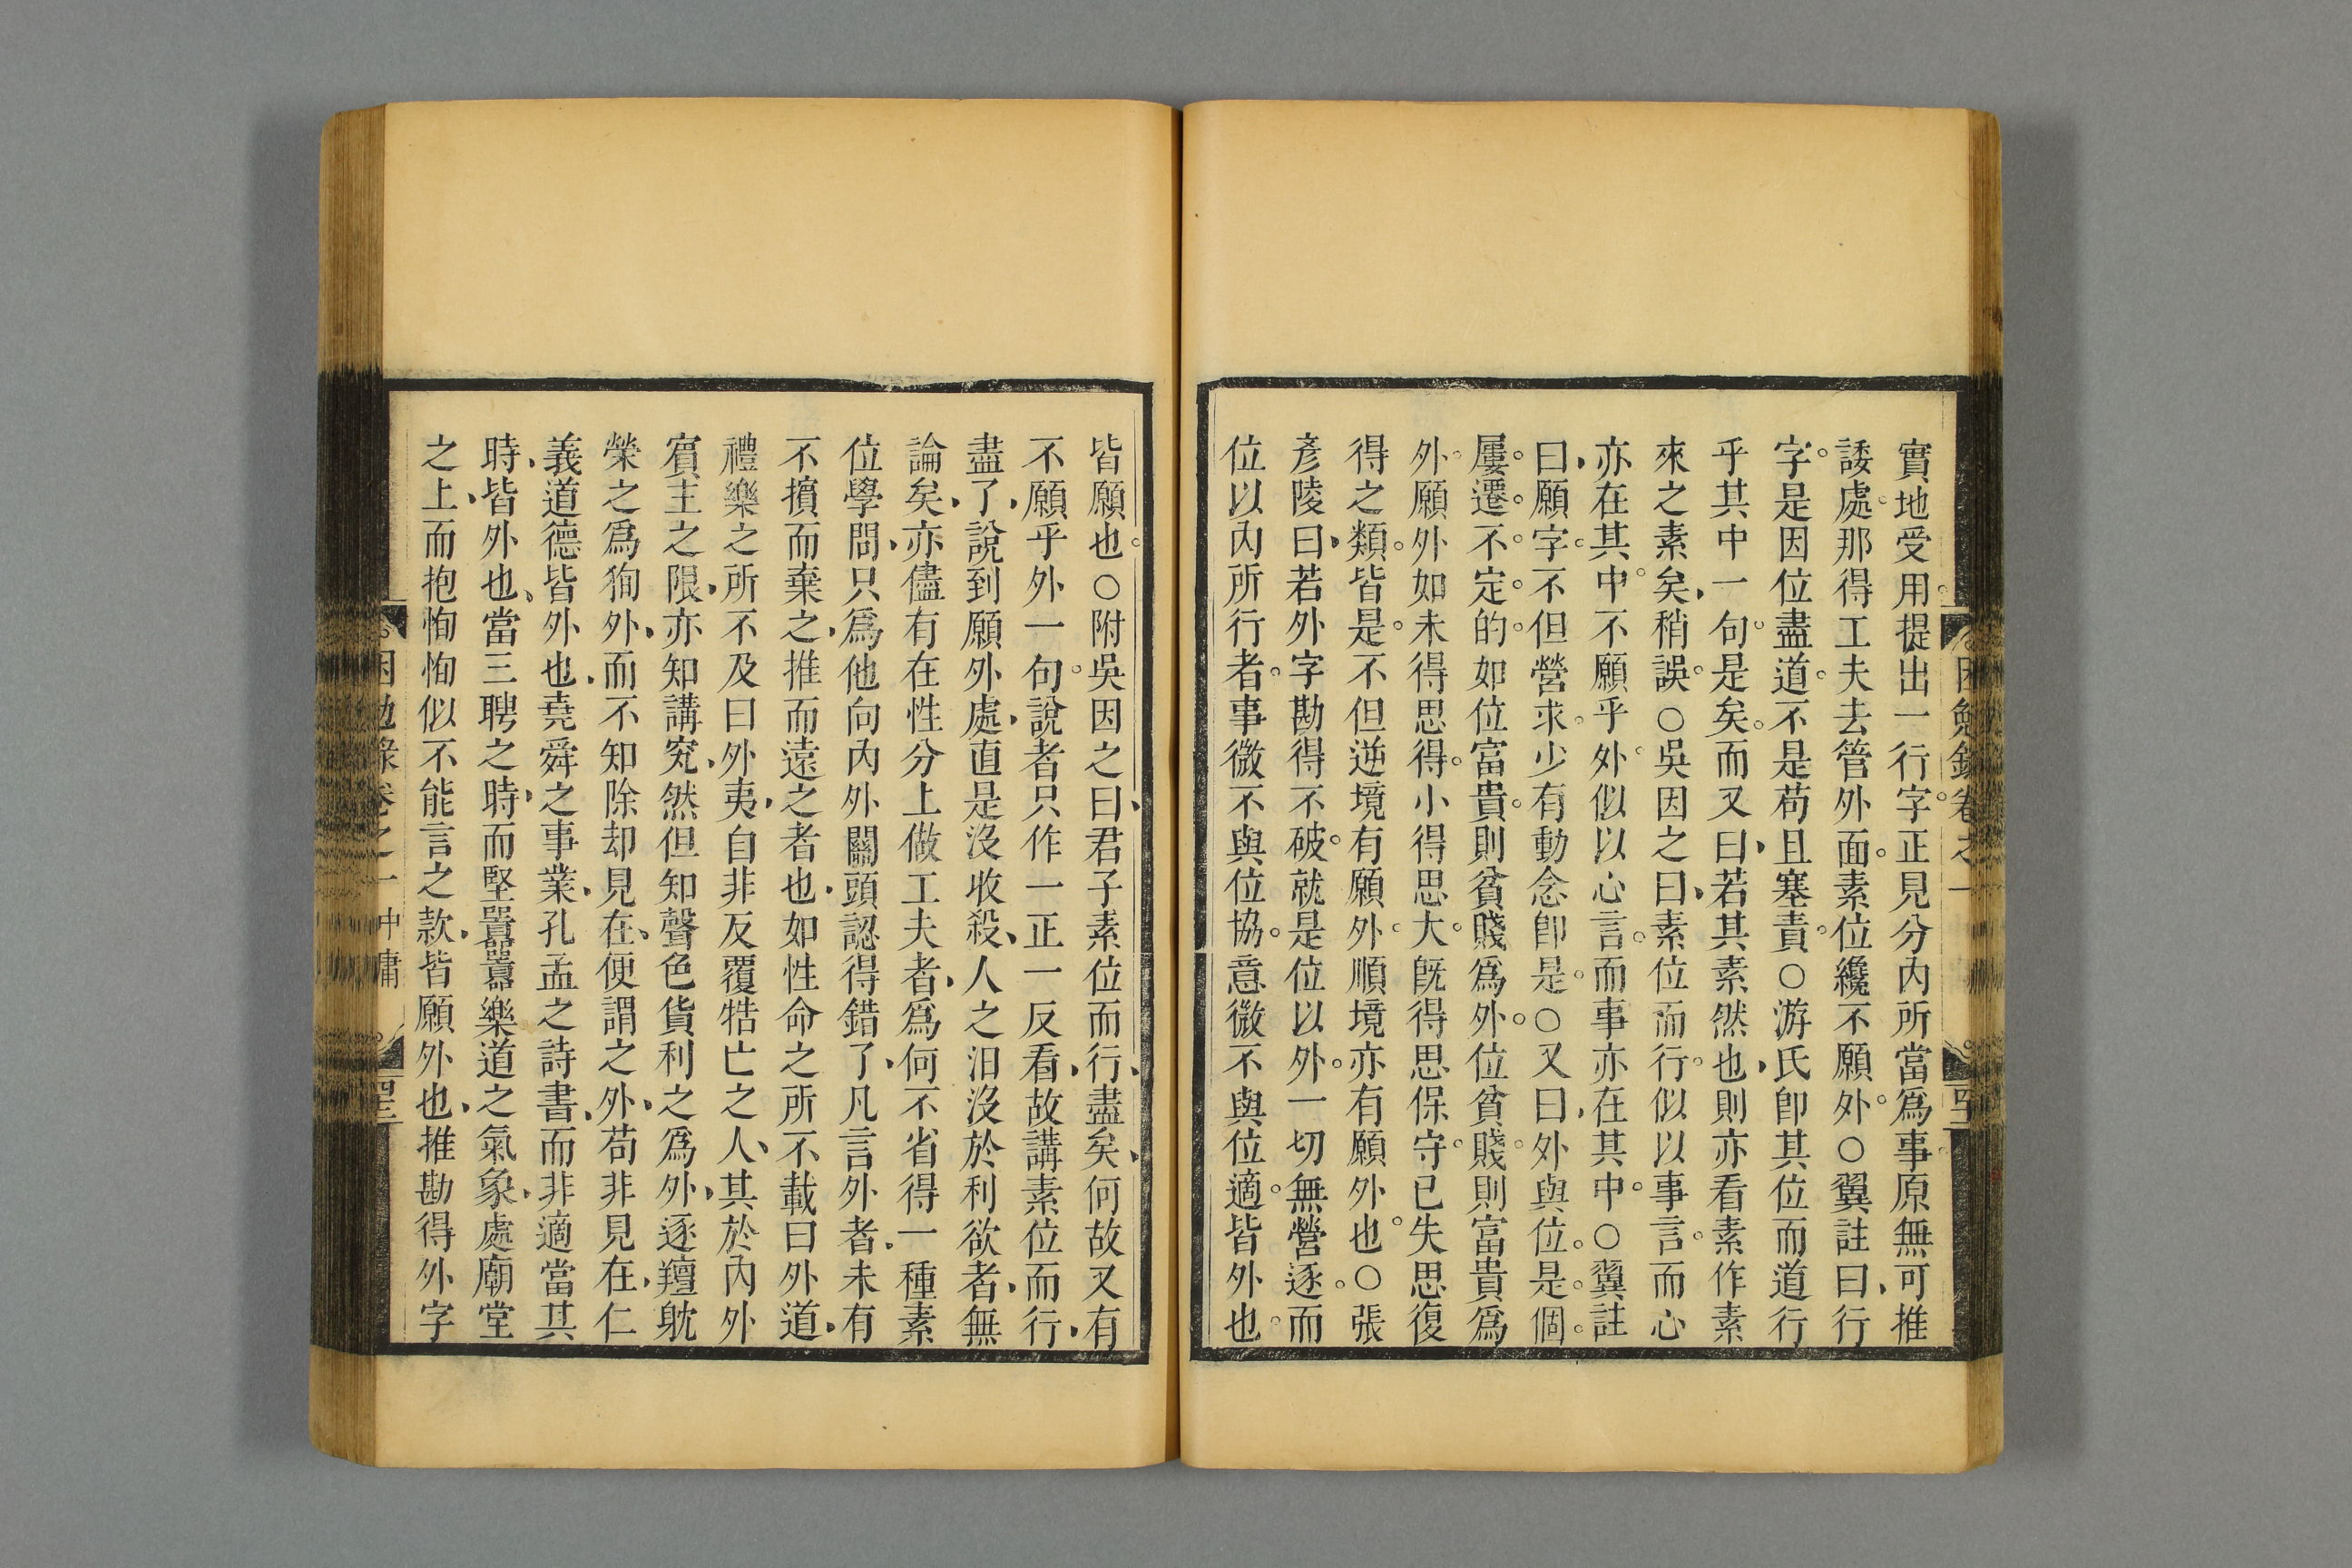 實地受用提出一行字正見分內所當爲事原無可推
諉處那得工夫去管外面素位纔不願外○翼註曰行
字是因位盡道不是苟且塞責○游氏卽其位而道行
乎其中一句是矣而又曰若其素然也則亦看素作素
來之素矣稍誤○吳因之曰素位而行似以事言而心
亦在其中不願乎外似以心言而事亦在其中○翼註
曰願字不但營求少有動念卽是○又曰外與位是個
屢遷不定的如位富貴則貧賤爲外位貧賤則富貴爲
外願外如未得思得小得思大旣得思保守已失思復
得之類皆是不但逆境有願外順境亦有願外也○張
彥陵曰若外字勘得不破就是位以外一切無營逐而
位以內所行者事微不與位協意微不與位適皆外也
皆願也○附吳因之曰君子素位而行盡矣何故又有
不願乎外一句說者只作一正一反看故講素位而行
盡了說到願外處直是沒收殺人之汩沒於利欲者無
論矣亦儘有在性分上做工夫者爲何不省得一種素
位學問只爲他向內外關頭認得錯了凡言外者未有
不擯而棄之推而遠之者也如性命之所不載曰外道
禮樂之所不及曰外夷自非反覆牿亡之人其於內外
賓主之限亦知講究然但知聲色貨利之爲外逐羶躭
榮之爲狥外而不知除却見在便謂之外苟非見在仁
義道德皆外也堯舜之事業孔孟之詩書而非適當其
時皆外也當三聘之時而堅囂囂樂道之氣象處廟堂
之上而抱恂恂似不能言之款皆願外也推勘得外字
困勉錄卷之一 中庸